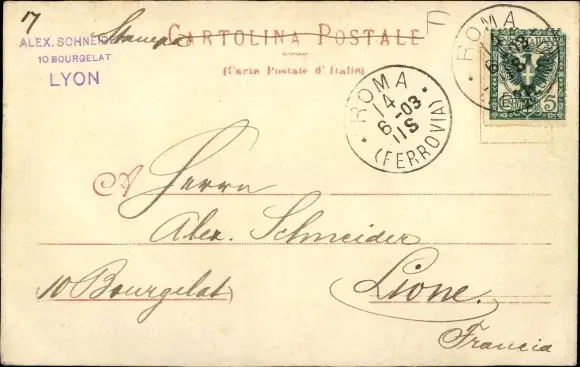 7
Stampe
CARTOLINA POSTALE
(Carte Postale d'Italie)
ALEX. SCHNEIDER
10 BOURGELAT
LYON
ROMA
14
6-03
11S
(FERROVIA)
ROMA
14
6-03
5
A Herrn
Alex. Schneider
10 Bourgelat
Lione.
Francia